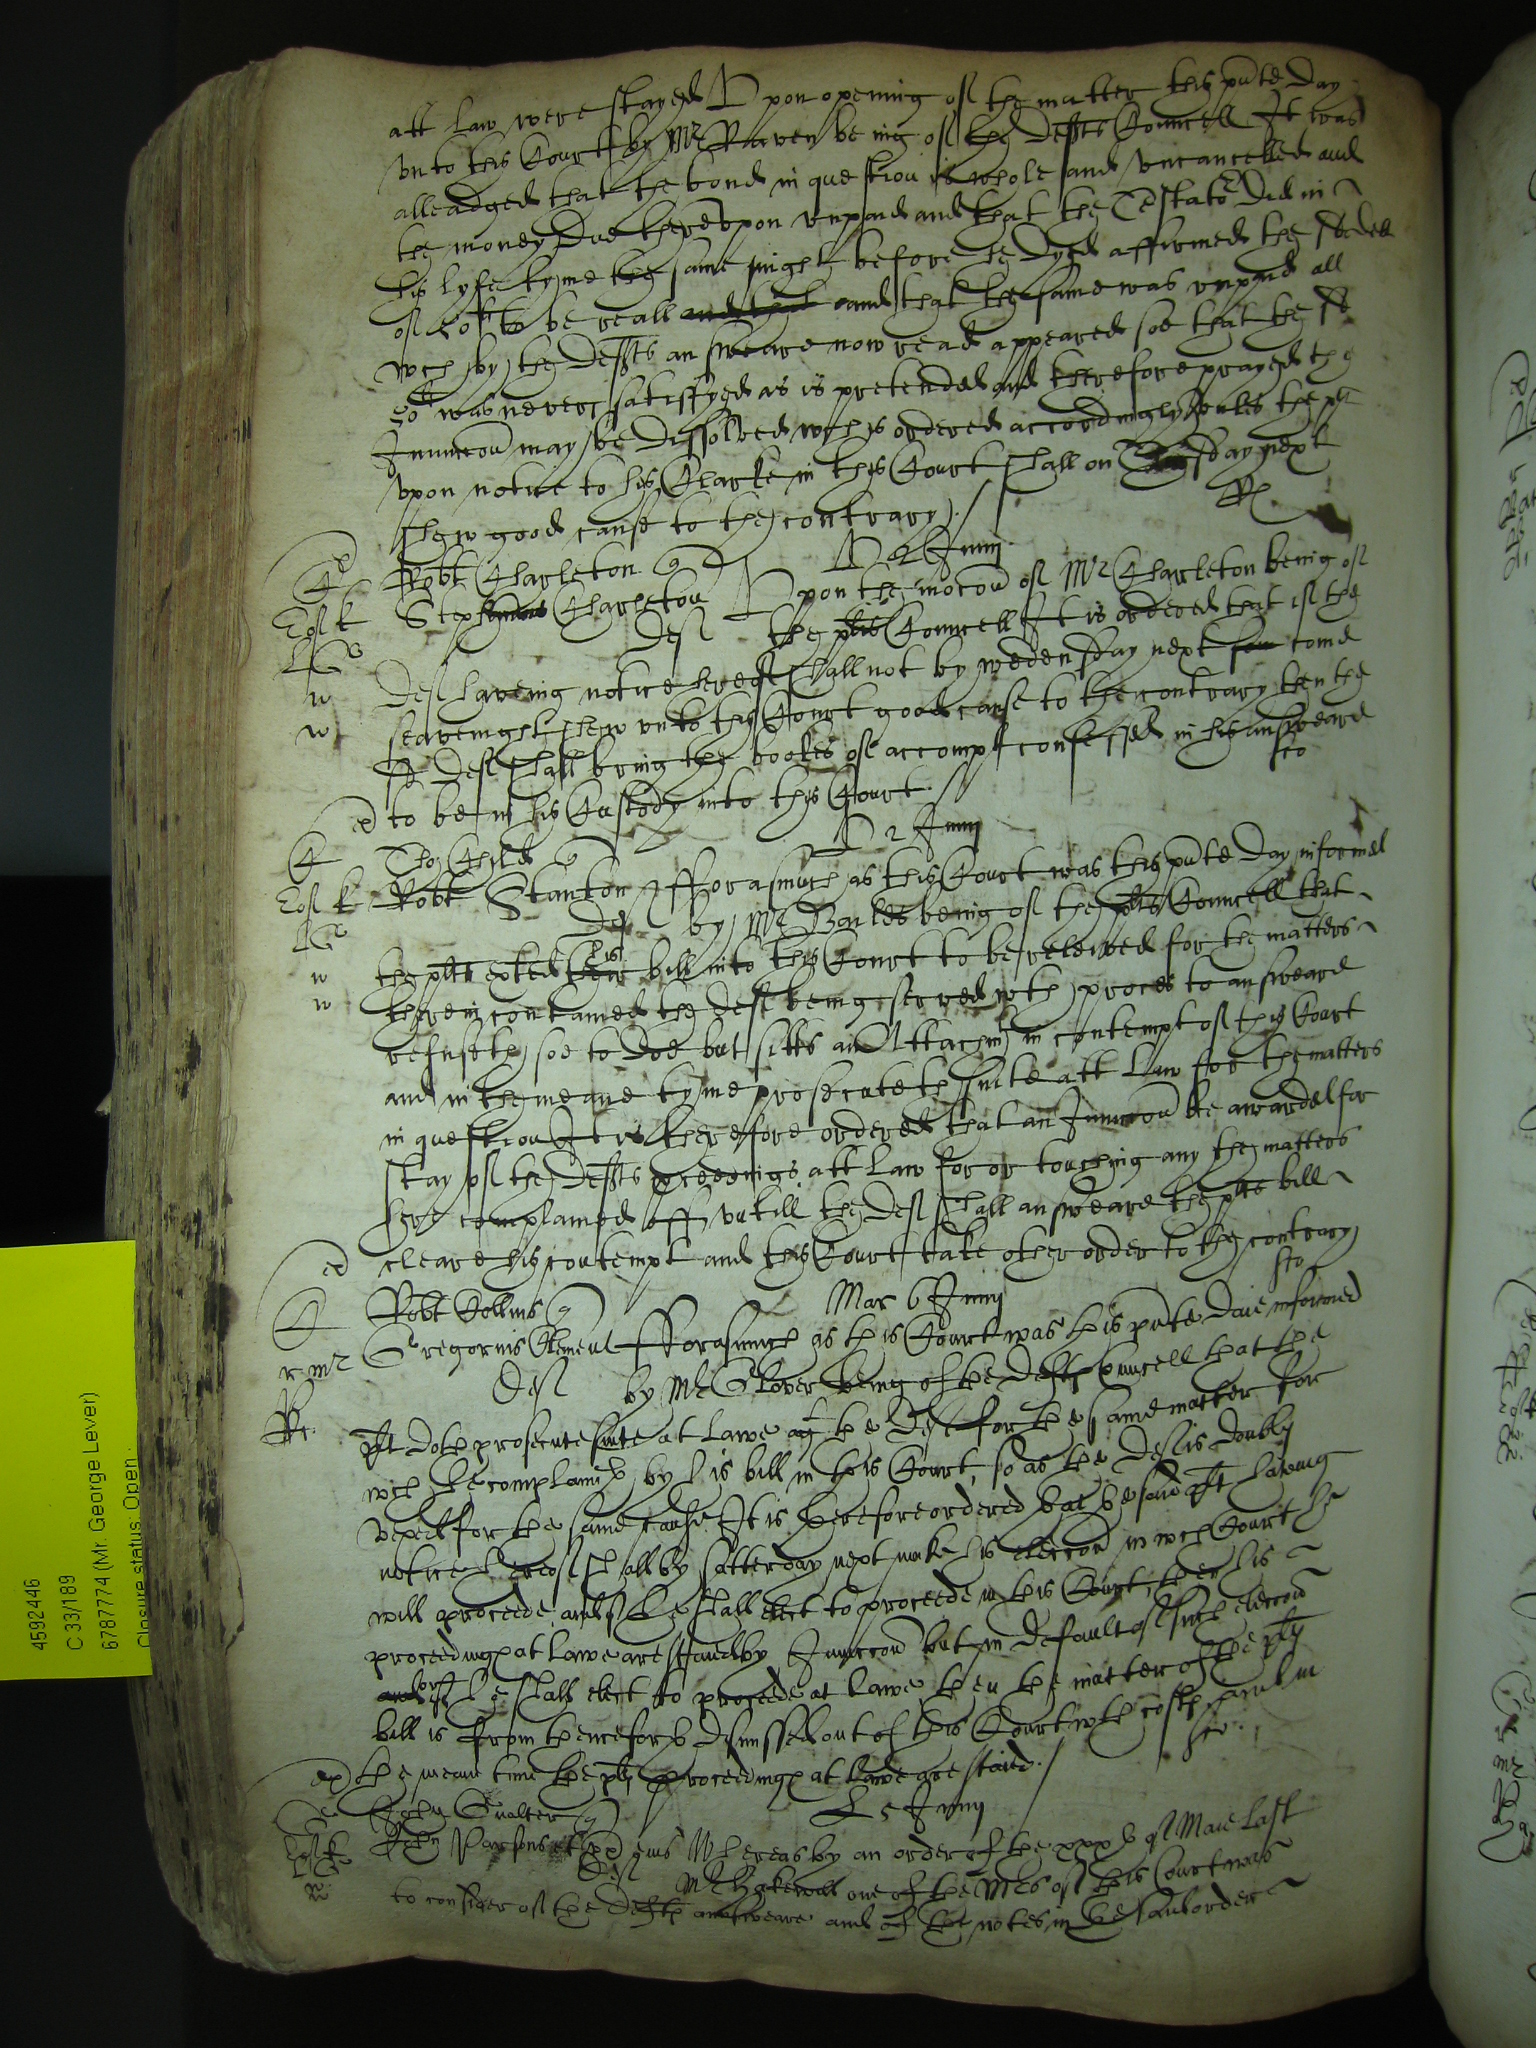 att law were stayed Upon opening of the matter this pnte day
unto this Court by Mr Raven being of the Defts Councell It was
alleadged that the bond in question is whole and uncancelled and
the money due thereupon unpaid and that the Testator did in
his lyfe tyme the same night before he dyed affirmed the sd debt
of to be reall and that and that the same was unpaid all
wch by the Defts answeare now read appeared soe that the sd
was never satisfyed as is pretended and therefore prayed the
Iniunccon may be dissolved wch is ordered accordingly unles the plt
upon notice to his Clarke in this Court shall on day next
shew good cause to the contrary
Robt Charleton q 2 Junij
Stephanus Charleton Upon the mocon of Mr Charleton being of
Def the plts Councell It is ordered that if the
Def haveing notice hereof shall not by wedensday next come
seavenight shew unto this Court good cause to the contrary then the
sd Def shall bring the bookes of accompt confessed in his answeare
to be in his Custody into this Court
2 Junij
Tho Child q
Robt Stanton fforasmuch as this Court was this pnte day informed
Def by Mr being of the plts Councell that
the plt exhted their his bill into this Court to be releived for the matters
therein contained the Deft being served wth proces to answeare
refuseth soe to doe but sitts an Attachmt in contempt of this Court
and in the meane tyme prosecuteth suite att law for the matters
in question It is therefore ordered that an Iniunccon be awarded for
stay of the Defts proceedings att law for or touching any the matters
here complained off untill the Def shall answeare the plts bill
cleare his contempt and this Court take other order to the contrary
Robt Collins q Mar 6 Junij
Gregorius Clement fforasmuch as this Court was this pnte daie informed
Def by Mr Glover being of the Defts Councell that the
plt doth prosecute suite at Lawe agt the Deft for the same matter for
wch he complaineth by his bill in this Court, so as the Def is doubly
vexed for the same cause It is therefore ordered that the said plt having
notice hereof shall by satterday next make his eleccon in wch Court he
will proceede, and if he shall elect to proceede in this Court, then his
proceedings at Lawe are stayed by Iniunccon but in default of such eleccon
and or if he shall elect to proceede at Lawe then the matter of the plts
bill is from thenceforth dismissed out of this Court wth costs and in
the meane time the plts proceedings at Lawe are staied.
John Gualter q 5 Junij
John Parsons et Whereas by an order of the xxxth of Maie last
Def Mr Bakewell one of the Mrs of this Court was
to consider of the Defts answeare and of the notes in the said order
4592446
C 33/189
6787774 (Mr. George Lever)
Closure status: Open